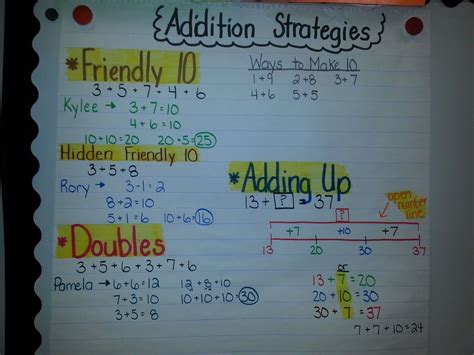 Addition Strategies
*Friendly 10
3+5+7+4+6
Kylee → 3+7=10
4+6=10
10+10=20 20+5=25
Ways to Make 10
1+9 2+8 3+7
4+6 5+5
Hidden Friendly 10
3+5+8
Rory → 3-1=2
8+2=10
5+1=6 10+6=16
*Doubles
3+5+6+3+7+6
Pamela → 6+6=12 12+8+10
7+3=10 10+10+10=30
3+5=8
*Adding Up
13+?=37
open number line
?
+7 +10 +7
13 20 30 37
or
13+7=20
20+10=30
30+7=37
7+7+10=24